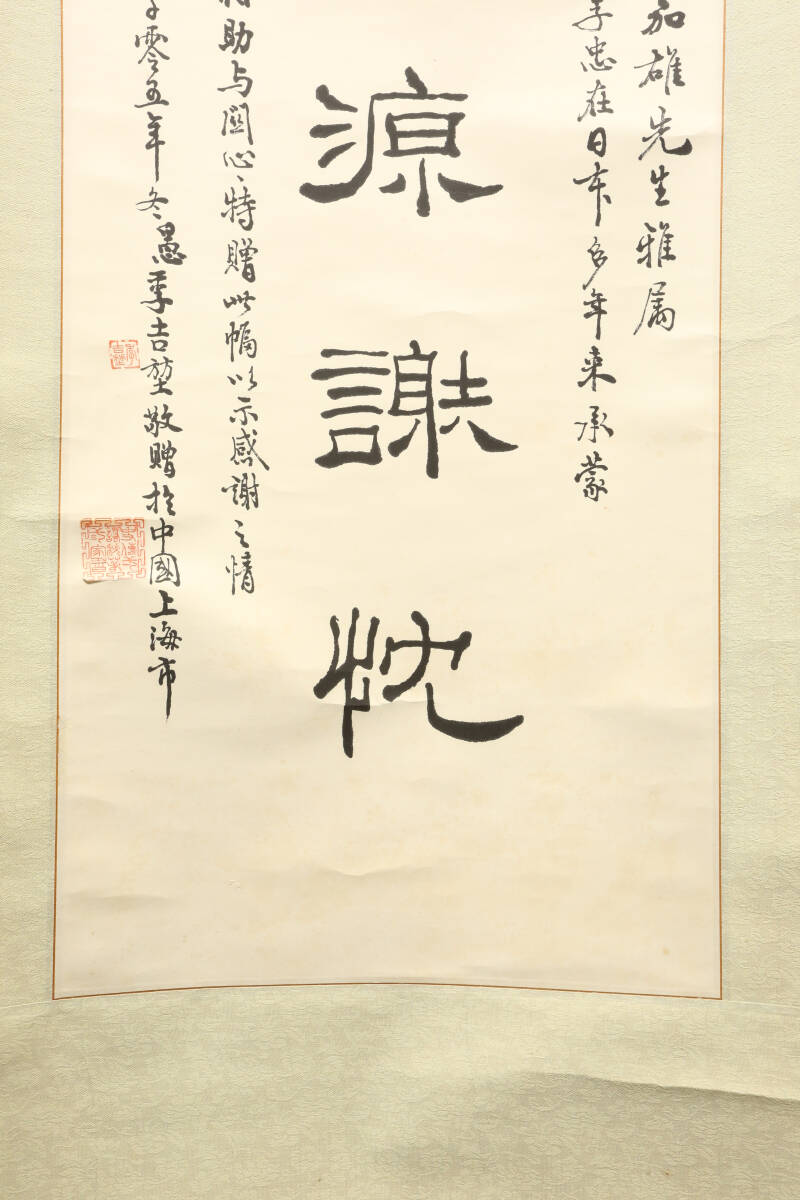 加雄先生雅属
李忠在日本多年来承蒙
源謝忱
助与関心、特赠此幅以示感謝之情
零五年冬愚季吉堃敬赠於中國上海市